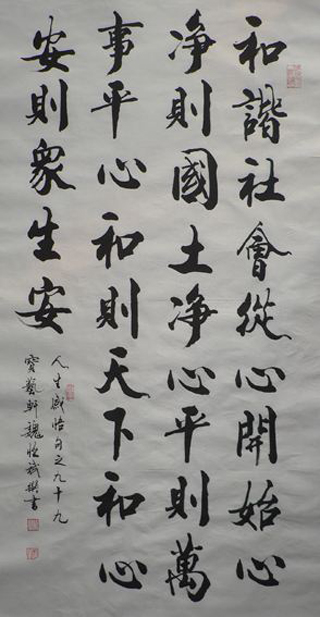 和諧社會從心開始心
净則國土净心平則萬
事平心和則天下和心
安則衆生安
人生感悟句之九十九
寶藝軒魏 書